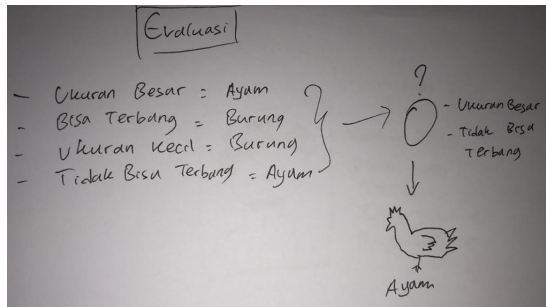 Evaluasi
- Ukuran Besar = Ayam
- Bisa Terbang = Burung
- Ukuran Kecil = Burung
- Tidak Bisa Terbang = Ayam
?
- Ukuran Besar
- Tidak Bisa
Terbang
Ayam